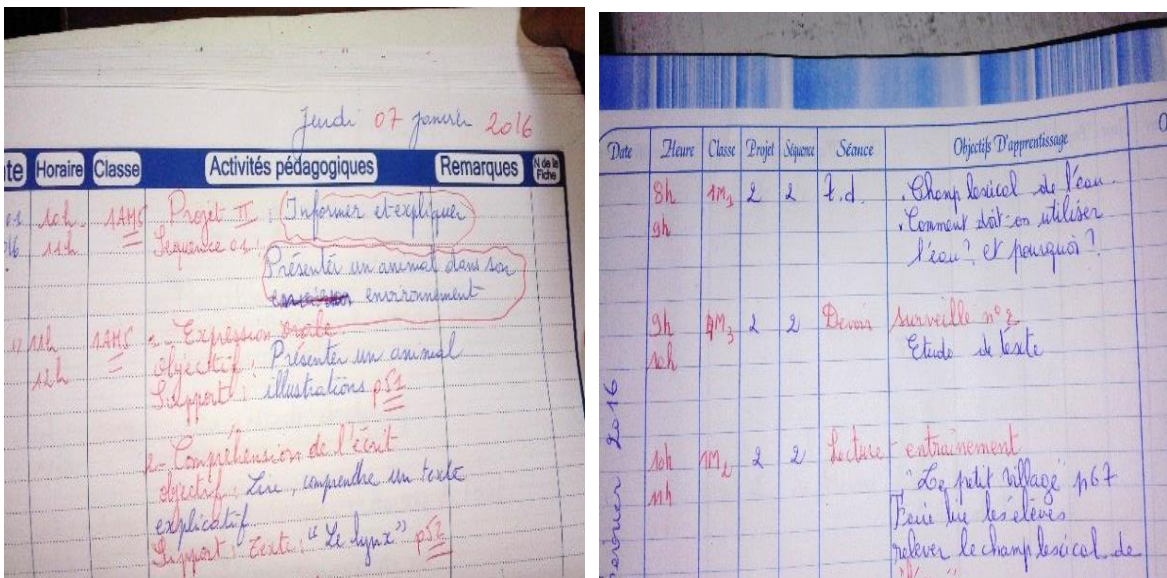 Jeudi 07 janvier 2016
te Horaire Classe Activités pédagogiques Remarques N de la Fiche
10h. 1AM5 Projet II : Informer et expliquer
16 11h Sequence 01 :
Présenter un animal dans son
environnement
11h 1AM5 1 - Expression orale
12h objectif : Présenter un animal
Support : illustrations p51
2 - Compréhension de l'écrit
objectif : Lire, comprendre un texte
explicatif
Support : Texte : "Le lynx" p52
Date Heure Classe Projet Séquence Séance Objectifs D'apprentissage
8h 1M1 2 2 t.d. . Champ lexical de l'eau.
9h . Comment doit-on utiliser
l'eau ? et pourquoi ?
9h 1M3 2 2 Devoir surveillé n°2
10h Etude de texte
2016
10h 1M2 2 2 Lecture - entrainement
11h "Le petit village" p67
Faire lire les élèves
relever le champ lexical de